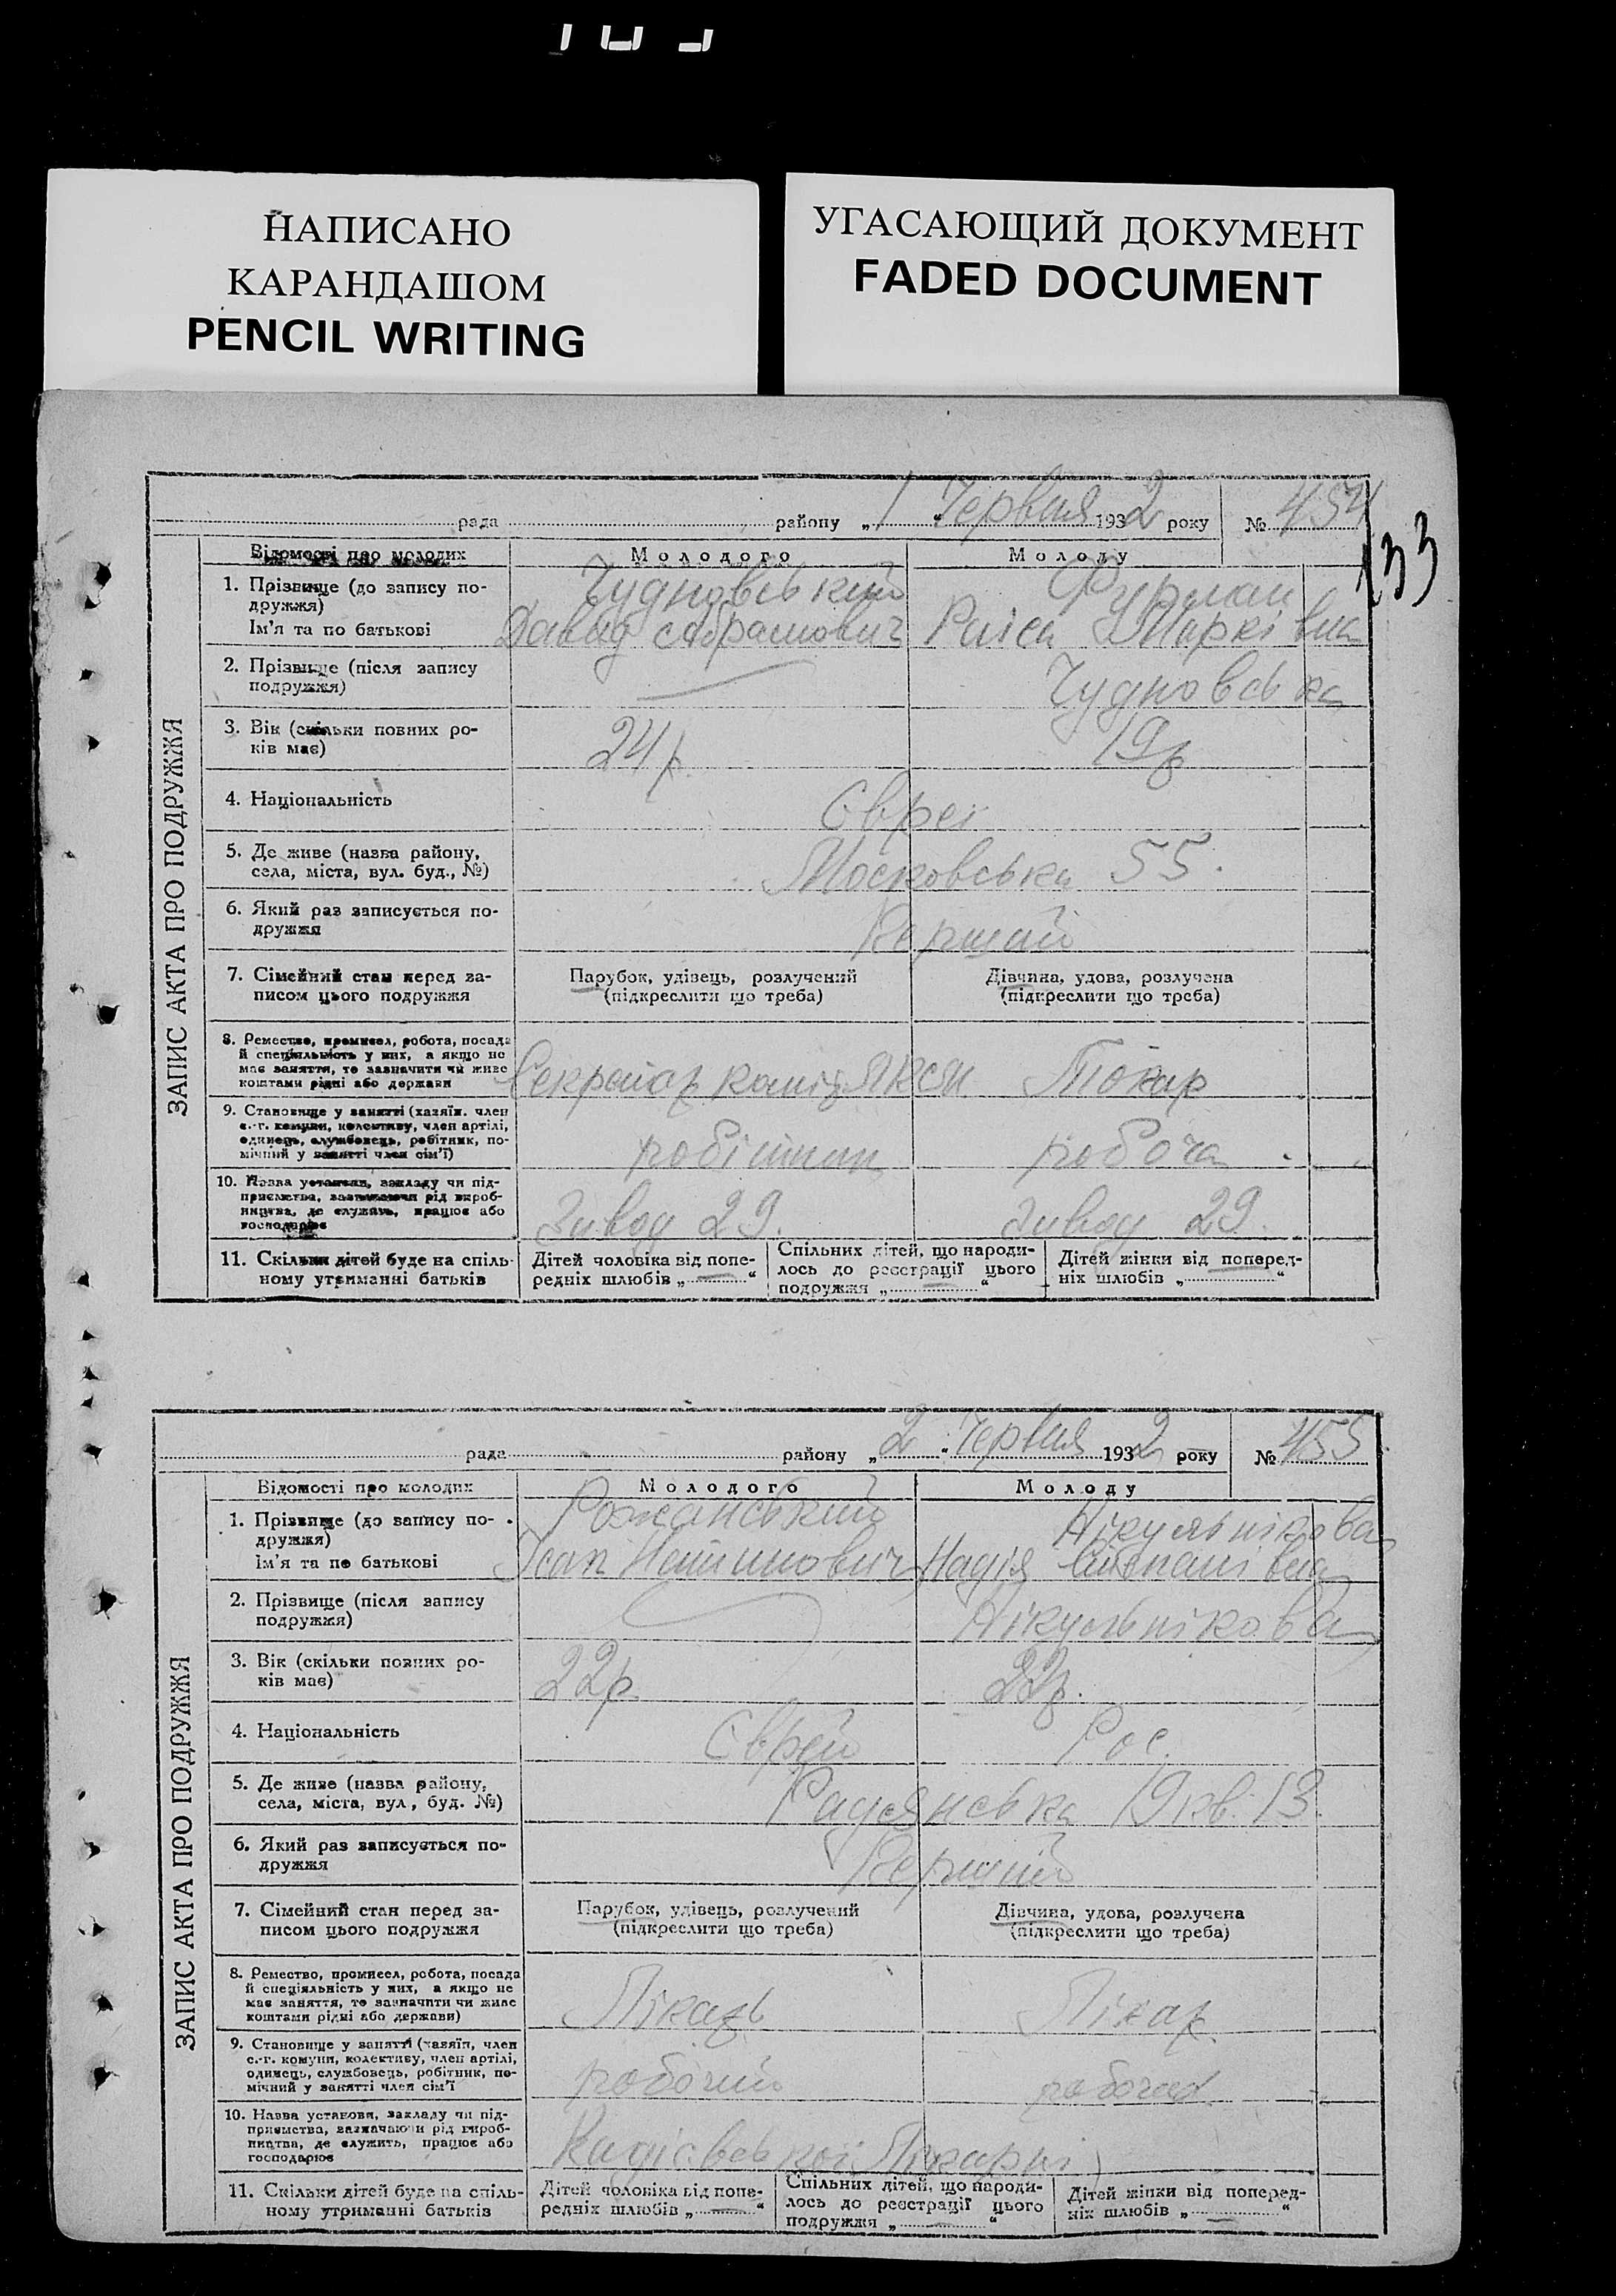 НАПИСАНО
КАРАНДАШОМ
PENCIL WRITING
УГАСАЮЩИЙ ДОКУМЕНТ
FADED DOCUMENT
133
рада району „1“ Червня 1932 року № 454
ЗАПИС АКТА ПРО ПОДРУЖЖЯ
Відомості про молодих Молодого Молоду
1. Прізвище (до запису по- Чудновський Фурман
дружжя)
Ім'я та по батькові Давид Абрамович Раіса Марківна
2. Прізвище (після запису Чудновська
подружжя)
3. Вік (скільки повних ро- 24р. 19р
ків має)
4. Національність Євреї
5. Де живе (назва району, Московська 55.
села, міста, вул. буд., №)
6. Який раз записується по- Перший
дружжя
7. Сімейний стан перед за- Парубок, удівець, розлучений Дівчина, удова, розлучена
писом цього подружжя (підкреслити що треба) (підкреслити що треба)
8. Ремество, промисел, робота, посада
й спеціяльність у них, а якщо не
має заняття, то зазначити чи живе
коштами рідні або держави Секретар Токар
9. Становище у занятті (хазяїн, член
с.-г. комуни, колективу, член артілі,
одинець, службовець, робітник, по- робітник робоча
мічний у занятті член сім'ї)
10. Назва установи, закладу чи під-
приємства, зазначаючи рід вироб-
ництва, де служить, працює або Завод 29. Завод 29.
господарює
11. Скільки дітей буде на спіль- Дітей чоловіка від попе- Спільних дітей, що народи- Дітей жінки від поперед-
ному утриманні батьків редніх шлюбів „—“ лось до реєстрації цього ніх шлюбів „ “
подружжя „—“
рада району „2“ Червня 1932 року № 455
ЗАПИС АКТА ПРО ПОДРУЖЖЯ
Відомості про молодих Молодого Молоду
1. Прізвище (до запису по- Рожанський Нікульнікова
дружжя)
Ім'я та по батькові Надія Степанівна
2. Прізвище (після запису Нікульнікова
подружжя)
3. Вік (скільки повних ро- 22р. 22р.
ків має)
4. Національність Єврей Рос.
5. Де живе (назва району, Радянська 19 кв. 13
села, міста, вул, буд. №)
6. Який раз записується по- Перший
дружжя
7. Сімейний стан перед за- Парубок, удівець, розлучений Дівчина, удова, розлучена
писом цього подружжя (підкреслити що треба) (підкреслити що треба)
8. Ремество, промисел, робота, посада
й спеціяльність у них, а якщо не
має заняття, то зазначити чи живе
коштами рідні або держави)
9. Становище у занятті (хазяїн, член
с.-г. комуни, колективу, член артілі,
одинець, службовець, робітник, по- робочий робочая
мічний у занятті член сім'ї
10. Назва установи, закладу чи під-
приємства, зазначаючи рід вироб-
ництва, де служить, працює або
господарює
11. Скільки дітей буде на спіль- Дітей чоловіка від попе- Спільних дітей, що народи- Дітей жінки від поперед-
ному утриманні батьків редніх шлюбів „—“ лось до реєстрації цього ніх шлюбів „—“
подружжя „—“